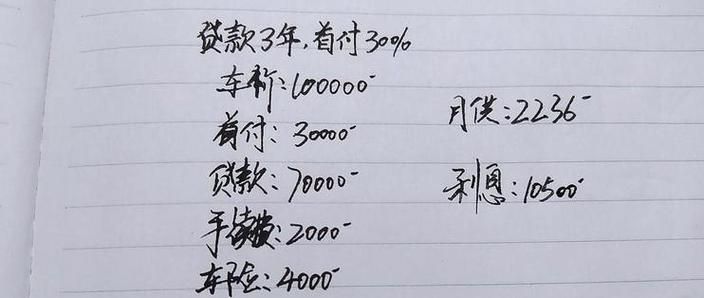 贷款3年,首付30%
车价:100000-
首付:30000-
贷款:70000-
手续费:2000-
车险:4000-
月供:2236-
利息:10500-